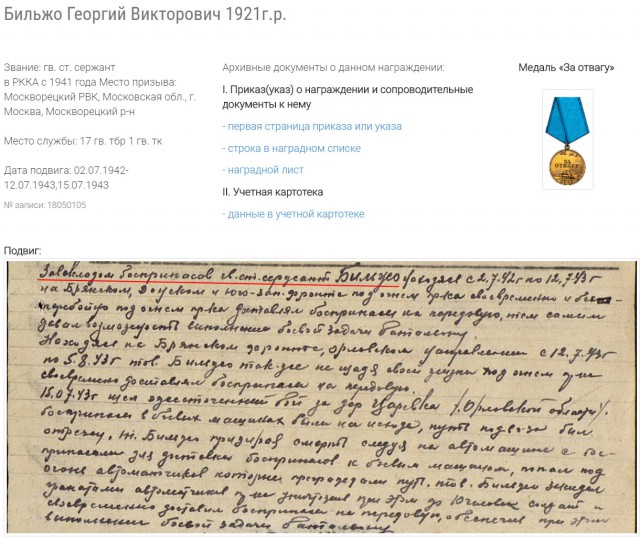 Бильжо Георгий Викторович 1921г.р.
Звание: гв. ст. сержант
в РККА с 1941 года Место призыва:
Москворецкий РВК, Московская обл., г.
Москва, Москворецкий р-н
Место службы: 17 гв. тбр 1 гв. тк
Дата подвига: 02.07.1942-
12.07.1943,15.07.1943
№ записи: 18050105
Архивные документы о данном награждении:
I. Приказ(указ) о награждении и сопроводительные
документы к нему
- первая страница приказа или указа
- строка в наградном списке
- наградной лист
II. Учетная картотека
- данные в учетной картотеке
Медаль «За отвагу»
ЗА
ОТВАГУ
Подвиг:
Завскладом боеприпасов гв. ст. сержант Бильжо находясь с 2.7.42г по 12.7.43г
на Брянском, Донском и Юго-зап. фронте под огнем врага своевременно и бес-
перебойно под огнем врага доставлял боеприпасы на передовую, тем самым
давал возможность выполнению боевой задачи батальону.
Находясь на Брянском фронте, Орловском направлении с 12.7.43г
по 5.8.43г тов. Бильжо так-же не щадя своей жизни под огнем
своевременно доставлял боеприпасы на передовую.
15.07.43г шел ожесточенный бой за дер Царевка /Орловской области/.
боеприпасы в боевых машинах были на исходе, путь подвоза был
отрезан, т. Бильжо презирая смерть следуя на автомашине с бое-
припасами для доставки боеприпасов к боевым машинам, попал под
огонь автоматчиков которые преграждали путь. тов. Бильжо
гранатами автоматчиков уничтожил при этом до 10 человек солдат и
своевременно доставил боеприпасы на передовую, обеспечив при этом
выполнение боевой задачи батальону